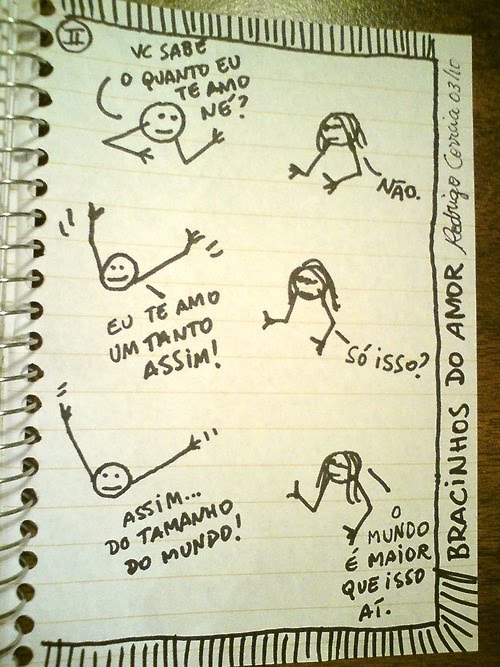 II
VC SABE
O QUANTO EU
TE AMO
NÉ?
NÃO.
EU TE AMO
UM TANTO
ASSIM!
SÓ ISSO?
ASSIM...
DO TAMANHO
DO MUNDO!
O
MUNDO
É MAIOR
QUE ISSO
AÍ.
BRACINHOS DO AMOR Rodrigo Correia 03/10